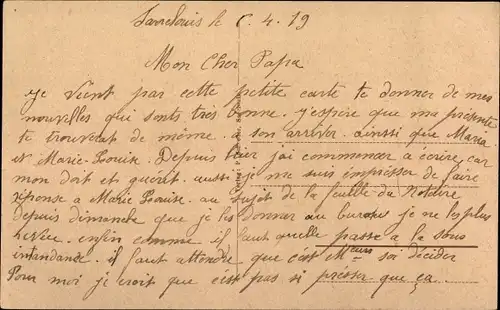 Sarrelouis le 6. 4. 19
Mon Cher Papa
Je vient par cette petite carte te donner de mes
nouvelles qui sonts très bonne. j'espère que ma présente
te trouverat de même. a son arriver. ainsi que Maria
et Marie-Louise. Depuis hier j'ai commencer a écrire, car
mon doit et guérit. aussi je me suis empresser de faire
réponse a Marie Louise. au sujet de la feuille du Notaire
depuis dimanche que je les donner au bureau je ne les plus
revue. enfin comme il faut quelle passe a la sous
intandance. il faut attendre que c'est M eurs soi décider
Pour moi je croit que c'est pas si presser que ça